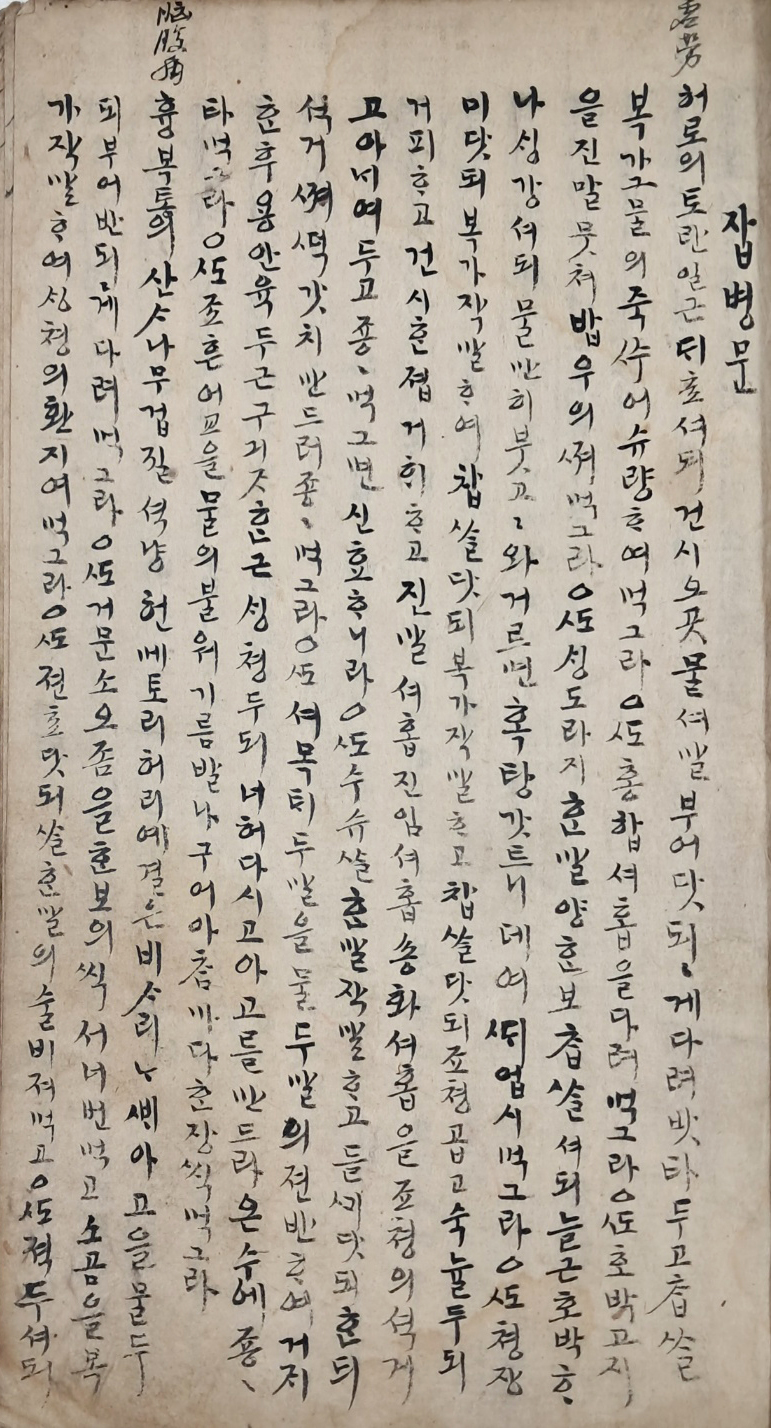 잡병문
虛勞
허로의 토란 일근 디초 셔되 건시 오곳 물 셔말 부어 닷되 게 다려 밧타 두고 찹쌀
복가 그 물의 죽 쑤어 슈량ᄒᆞ여 먹그라 ○ ᄯᅩ 홍합 셔홉을 다려 먹그라 ○ ᄯᅩ 호박고지
을 진말 뭇쳐 밥 우의 ᄶᅧ 먹그라 ○ ᄯᅩ ᄉᆡᆼ도라지 ᄒᆞᆫ 말 양 ᄒᆞᆫ보 찹쌀 셔되 늘근 호박 ᄒᆞ
나 ᄉᆡᆼ강 셔되 물 만히 붓고 고와 거르면 흑탕 갓트니 데여 ᄯᅴ 업시 먹그라 ○ ᄯᅩ 쳥쟝
미 닷되 복가 작말ᄒᆞ여 찹쌀 닷되 복가 작말ᄒᆞ고 찹쌀 닷되 죠쳥 곱고 숙뉼 두되
거피ᄒᆞ고 건시 ᄒᆞᆫ졉 거휘ᄒᆞ고 진말 셔홉 진임 셔홉 송화 셔홉을 죠쳥의 셕거
고아 너여 두고 죵죵 먹그면 신효ᄒᆞ니라 ○ ᄯᅩ 수슈쌀 ᄒᆞᆫ말 작말ᄒᆞ고 들ᄭᆡ 닷되 ᄒᆞᆫ듸
셕거 ᄶᅧ ᄯᅥᆨ갓치 만드러 죵죵 먹그라 ○ ᄯᅩ 셔목ᄐᆡ 두말을 물 두말의 젼반ᄒᆞ여 거지
ᄒᆞᆫ 후 용안육 두근 구긔ᄌᆞ ᄒᆞᆫ근 ᄉᆡᆼ쳥 두되 너허 다시 고아 고를 만드라 온수에 죵죵
타 먹그라 ○ ᄯᅩ 죠흔 어교을 물의 불워 기름 발나 구어 아ᄎᆞᆷ마다 ᄒᆞᆫ장식 먹그라
胸腹痛
흉복통의 산ᄉᆞ나무 겁질 셕냥 헌 메토리 허리예 결은 비ᄉᆞ리 ᄂᆞ ᄲᅢ아 고을 물 두
되 부어 반되 게 다려 먹그라 ○ ᄯᅩ 거문 소 오좀을 ᄒᆞᆫ보의식 서너번 먹고 소곰을 복
가 작말ᄒᆞ여 ᄉᆡᆼ쳥의 환지여 먹그라 ○ ᄯᅩ 젼초 닷되 쌀 ᄒᆞᆫ말의 술 비져 먹고 ○ ᄯᅩ 젹두 셔되